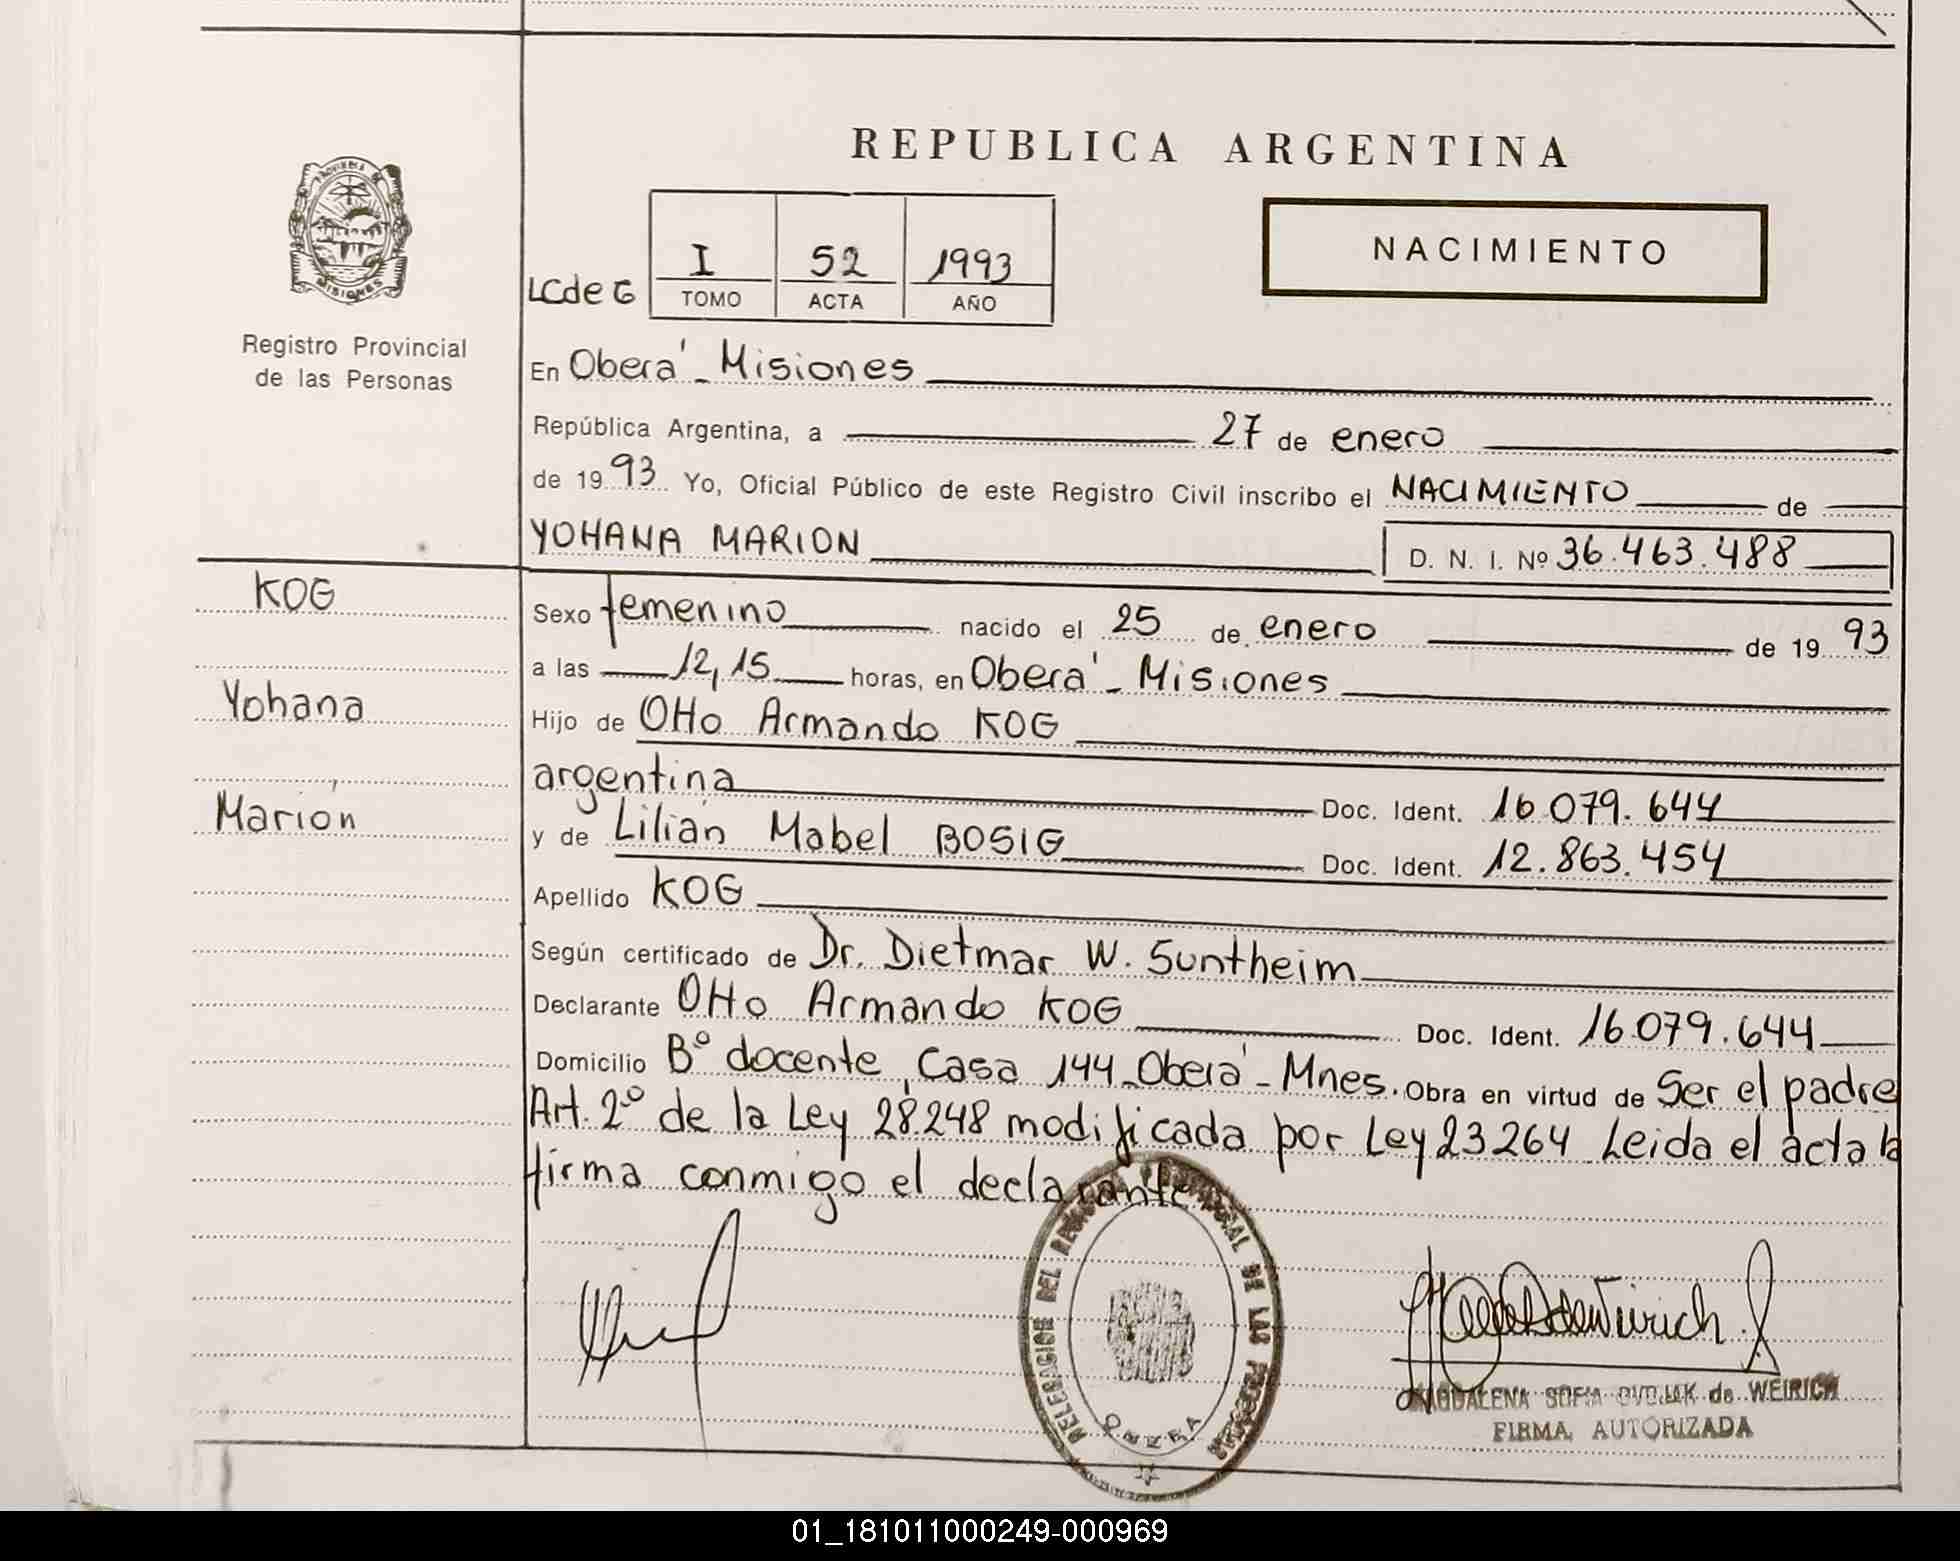 REPUBLICA ARGENTINA
PROVINCIA DE
MISIONES
Registro Provincial
de las Personas
LCdeG
I 52 1993
TOMO ACTA AÑO
NACIMIENTO
En Oberá - Misiones
República Argentina, a 27 de enero
de 1993 Yo, Oficial Público de este Registro Civil inscribo el NACIMIENTO de
YOHANA MARION D. N. I. Nº 36.463.488
KOG
Yohana
Marión
Sexo femenino nacido el 25 de enero de 1993
a las 12,15 horas, en Oberá - Misiones
Hijo de Otto Armando KOG
argentina Doc. Ident. 16.079.644
y de Lilián Mabel BOSIG Doc. Ident. 12.863.454
Apellido KOG
Según certificado de Dr. Dietmar W. Suntheim
Declarante Otto Armando KOG Doc. Ident. 16.079.644
Domicilio Bº docente, Casa 144 - Oberá - Mnes. Obra en virtud de Ser el padre
Art. 2º de la Ley 28.248 modificada por Ley 23264 Leida el acta la
firma conmigo el declarante
DELEGACION DEL REGISTRO PROVINCIAL DE LAS PERSONAS
OBERA
MAGDALENA SOFIA de WEIRICH
FIRMA AUTORIZADA
01_181011000249-000969